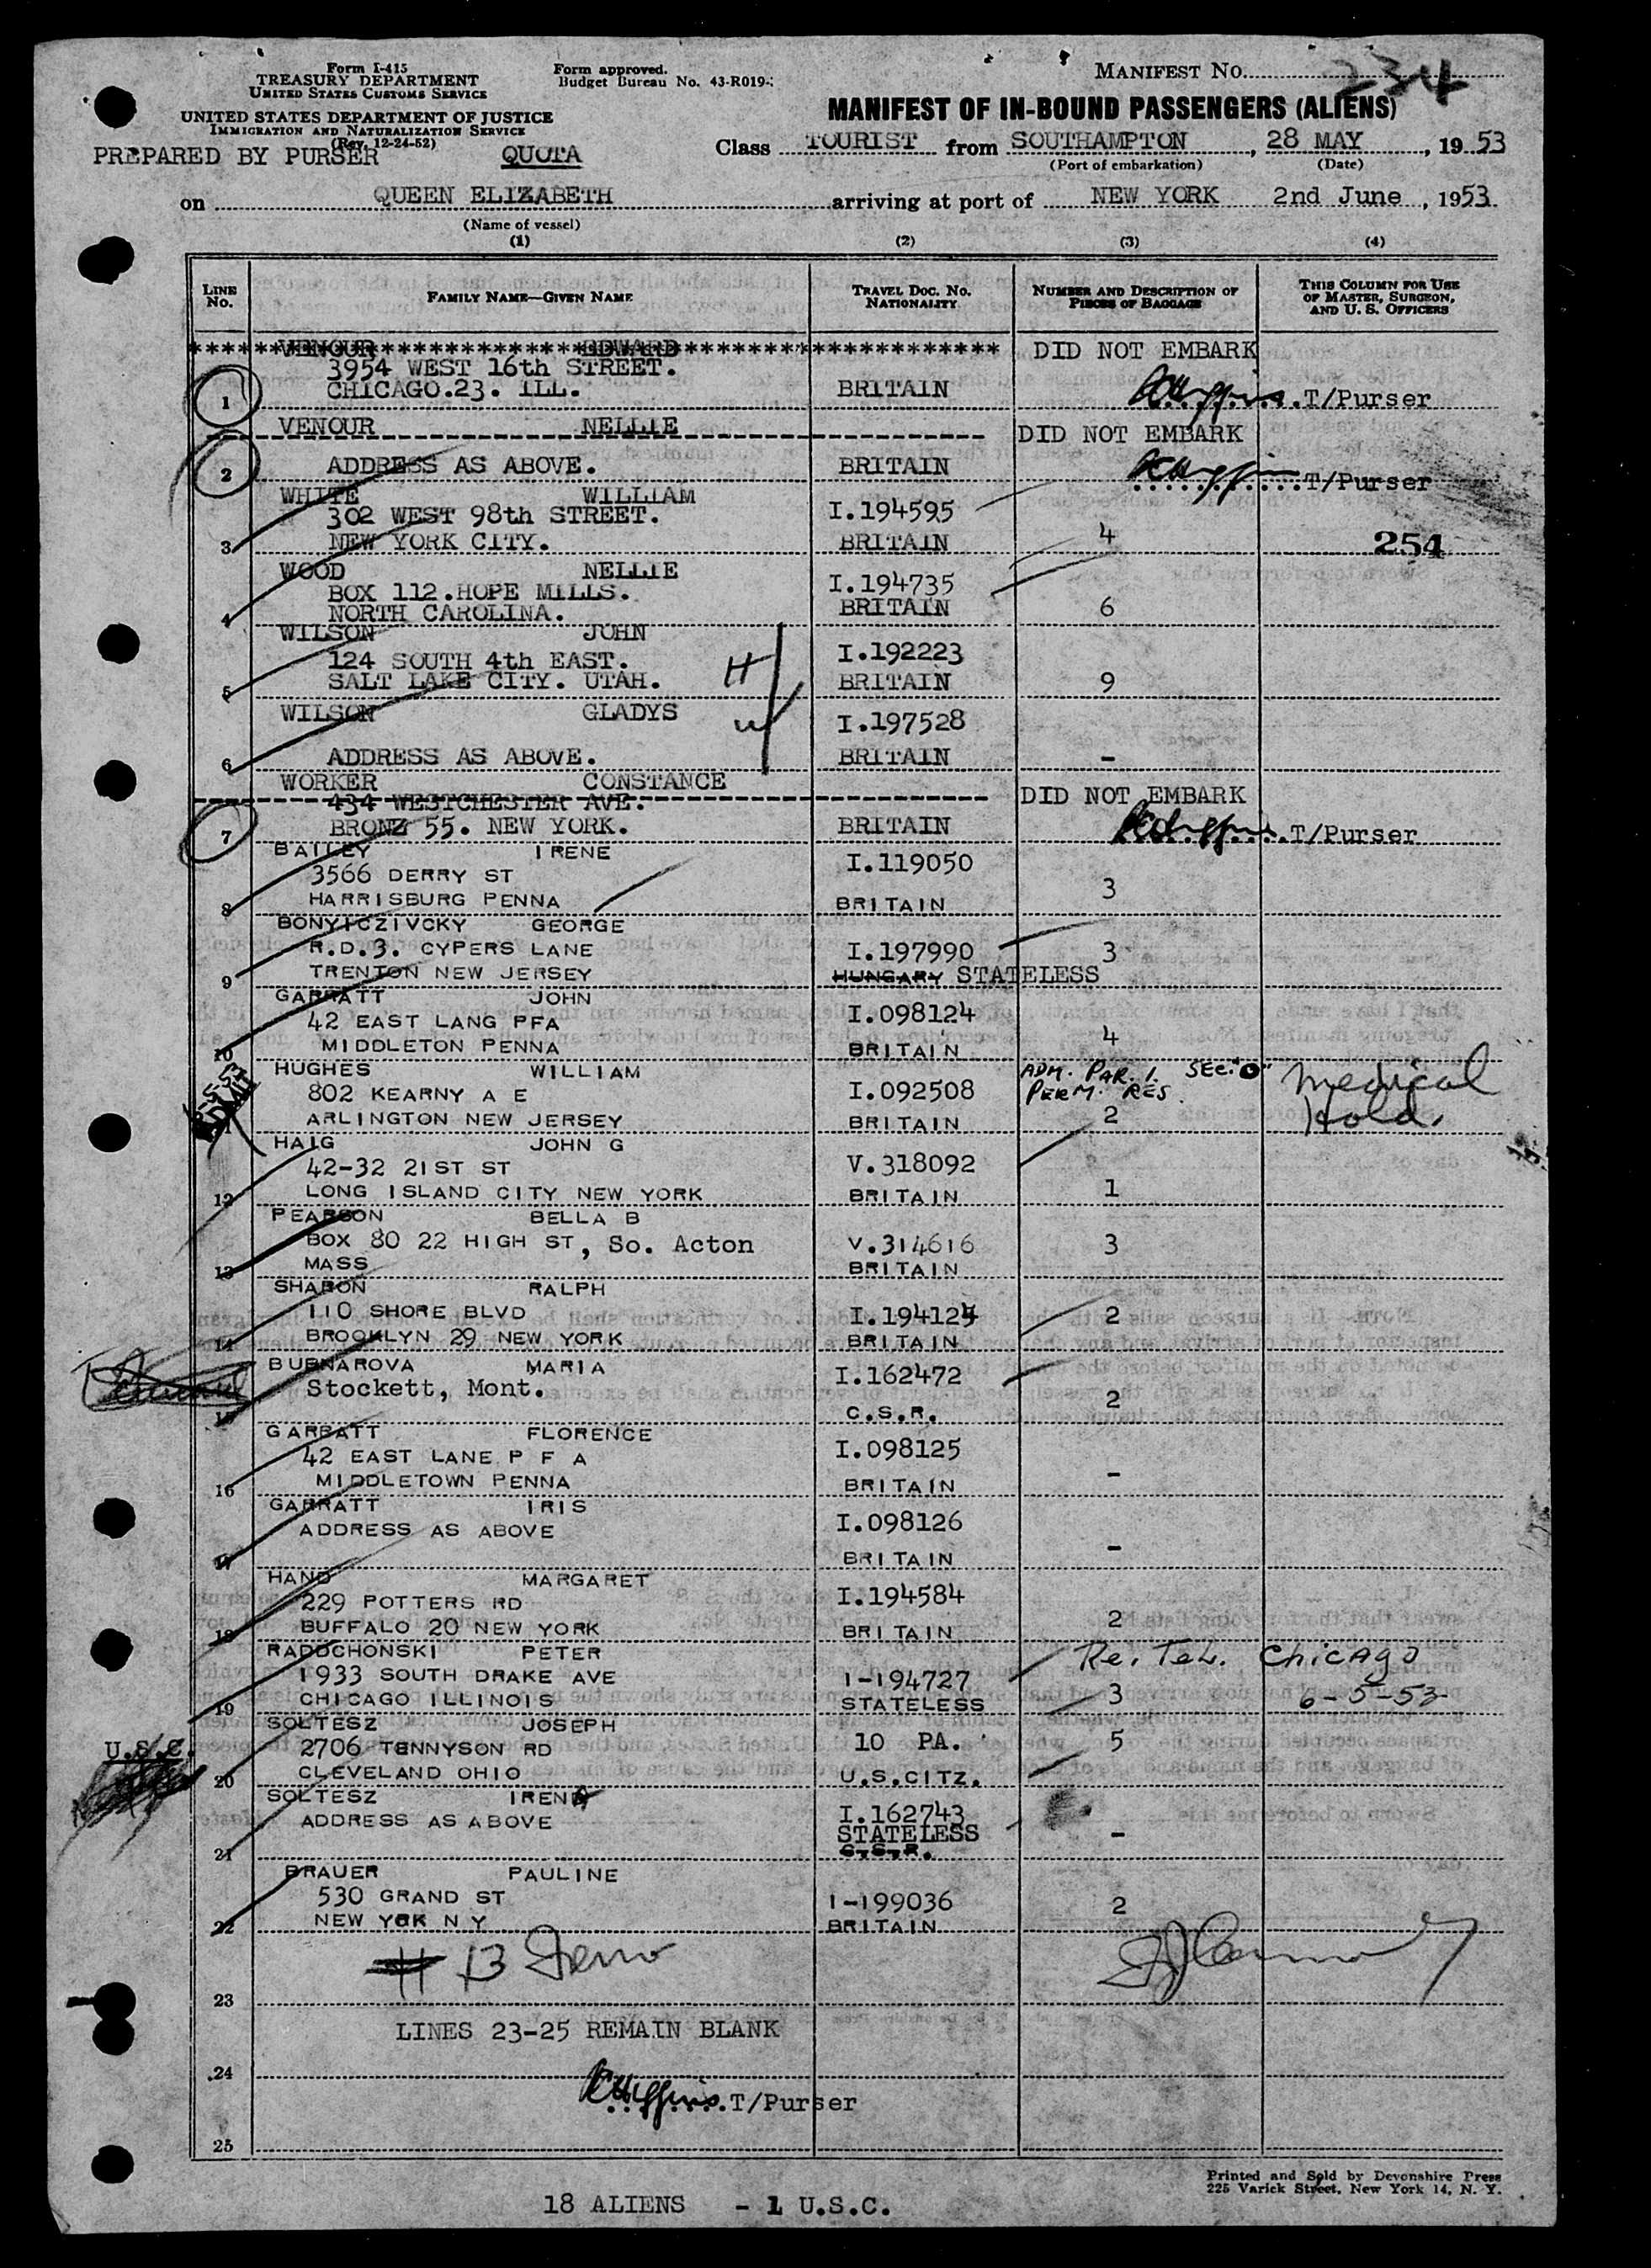 Form I-415
TREASURY DEPARTMENT
UNITED STATES CUSTOMS SERVICE
UNITED STATES DEPARTMENT OF JUSTICE
IMMIGRATION AND NATURALIZATION SERVICE
(Rev. 12-24-52)
Form approved.
Budget Bureau No. 43-R019-
MANIFEST No. 234
MANIFEST OF IN-BOUND PASSENGERS (ALIENS)
PREPARED BY PURSER QUOTA Class TOURIST from SOUTHAMPTON, 28 MAY, 1953
(Port of embarkation) (Date)
on QUEEN ELIZABETH arriving at port of NEW YORK 2nd June, 1953
(Name of vessel)
(1) (2) (3) (4)
LINE No. FAMILY NAME—GIVEN NAME TRAVEL DOC. No. NATIONALITY NUMBER AND DESCRIPTION OF PIECES OF BAGGAGE THIS COLUMN FOR USE OF MASTER, SURGEON, AND U. S. OFFICERS
VENOUR EDWARD DID NOT EMBARK
3954 WEST 16th STREET.
1 CHICAGO.23. ILL. BRITAIN T/Purser
VENOUR NELLIE DID NOT EMBARK
2 ADDRESS AS ABOVE. BRITAIN T/Purser
WHITE WILLIAM
302 WEST 98th STREET. I.194595
3 NEW YORK CITY. BRITAIN 4 254
WOOD NELLIE
BOX 112.HOPE MILLS. I.194735
4 NORTH CAROLINA. BRITAIN 6
WILSON JOHN
124 SOUTH 4th EAST. H I.192223
5 SALT LAKE CITY. UTAH. BRITAIN 9
WILSON GLADYS W I.197528
6 ADDRESS AS ABOVE. BRITAIN -
WORKER CONSTANCE
434 WESTCHESTER AVE. DID NOT EMBARK
7 BRONZ 55. NEW YORK. BRITAIN T/Purser
BAILEY IRENE
3566 DERRY ST I.119050
8 HARRISBURG PENNA BRITAIN 3
BONYICZIVCKY GEORGE
R.D.3. CYPERS LANE I.197990 3
9 TRENTON NEW JERSEY HUNGARY STATELESS
GARRATT JOHN
42 EAST LANG PFA I.098124
10 MIDDLETON PENNA BRITAIN 4
HUGHES WILLIAM ADM. PAR. 1. SEC. "O" Medical
802 KEARNY A E I.092508 PERM. RES. Hold.
11 ARLINGTON NEW JERSEY BRITAIN 2
ADMIT
HAIG JOHN G
42-32 21ST ST V.318092
12 LONG ISLAND CITY NEW YORK BRITAIN 1
PEARSON BELLA B
BOX 80 22 HIGH ST, So. Acton V.314616 3
13 MASS BRITAIN
SHARON RALPH
110 SHORE BLVD I.194124 2
14 BROOKLYN 29 NEW YORK BRITAIN
BUBNAROVA MARIA I.162472
Stockett, Mont. 2
15 C.S.R.
GARRATT FLORENCE
42 EAST LANE P F A I.098125
16 MIDDLETOWN PENNA BRITAIN -
GARRATT IRIS
ADDRESS AS ABOVE I.098126
17 BRITAIN -
HAND MARGARET
229 POTTERS RD I.194584
18 BUFFALO 20 NEW YORK BRITAIN 2
RADOCHONSKI PETER Re. Tel. Chicago
1933 SOUTH DRAKE AVE 1-194727
19 CHICAGO ILLINOIS STATELESS 3 6-5-53
SOLTESZ JOSEPH
U.S.C. 2706 TENNYSON RD 10 PA. 5
20 CLEVELAND OHIO U.S.CITZ.
SOLTESZ IRENA
ADDRESS AS ABOVE I.162743
STATELESS -
21 C.S.R.
BRAUER PAULINE
530 GRAND ST 1-199036 2
22 NEW YORK N Y BRITAIN
# 13
23
LINES 23-25 REMAIN BLANK
24
T/Purser
25
Printed and Sold by Devonshire Press
225 Varick Street, New York 14, N. Y.
18 ALIENS - 1 U.S.C.